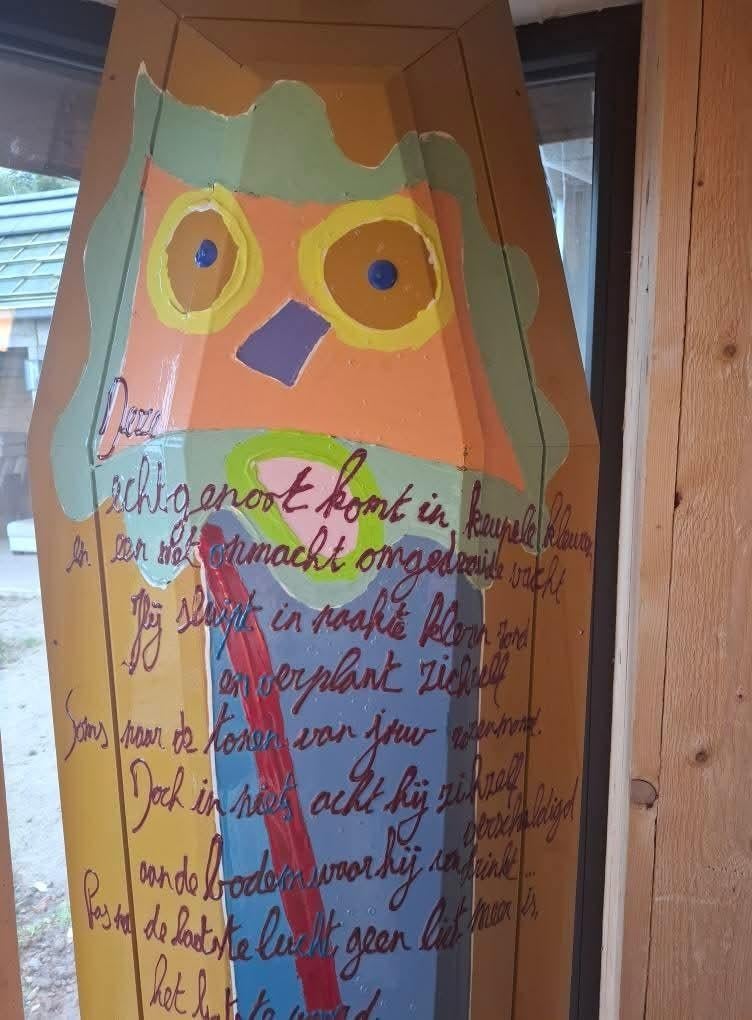 Deze
echtgenoot komt in kreupele kleuren
en een met onmacht omgedraaide vacht
Hij sluipt in naakte kleren rond
en verplant zichzelf
Soms naar de tonen van jouw rozenmond.
Doch in niets acht hij zichzelf
verschuldigd
aan de bodem waar hij van drinkt ...
Pas na de laatste lucht geen lust meer is,
het laatste